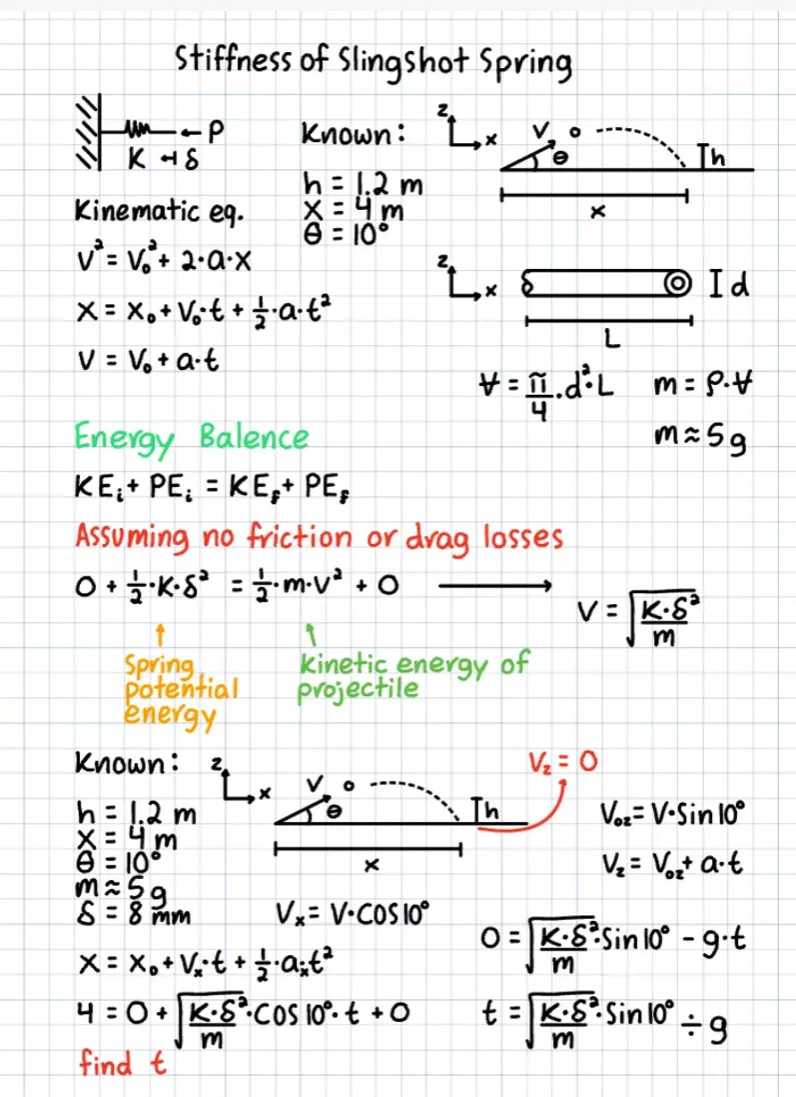 Stiffness of Slingshot Spring
P
K δ
Known:
h = 1.2 m
X = 4 m
θ = 10°
z
x
V
θ
h
x
Kinematic eq.
V² = V₀² + 2·a·x
X = X₀ + V₀·t + ½·a·t²
V = V₀ + a·t
z
x
d
L
V̶ = π̃/4 · d²·L
m = ρ·V̶
m ≈ 5g
Energy Balence
KEᵢ + PEᵢ = KE_f + PE_f
Assuming no friction or drag losses
0 + ½·K·δ² = ½·m·V² + 0
V = √(K·δ²/m)
Spring
potential
energy
kinetic energy of
projectile
Known:
h = 1.2 m
X = 4 m
θ = 10°
m ≈ 5g
δ = 8 mm
z
x
V
θ
h
x
V_z = 0
V₀z = V·Sin 10°
V_z = V₀z + a·t
Vₓ = V·COS 10°
X = X₀ + Vₓ·t + ½·aₓt²
4 = 0 + √(K·δ²/m)·COS 10°·t + 0
find t
0 = √(K·δ²/m)·Sin 10° - g·t
t = √(K·δ²/m)·Sin 10° ÷ g